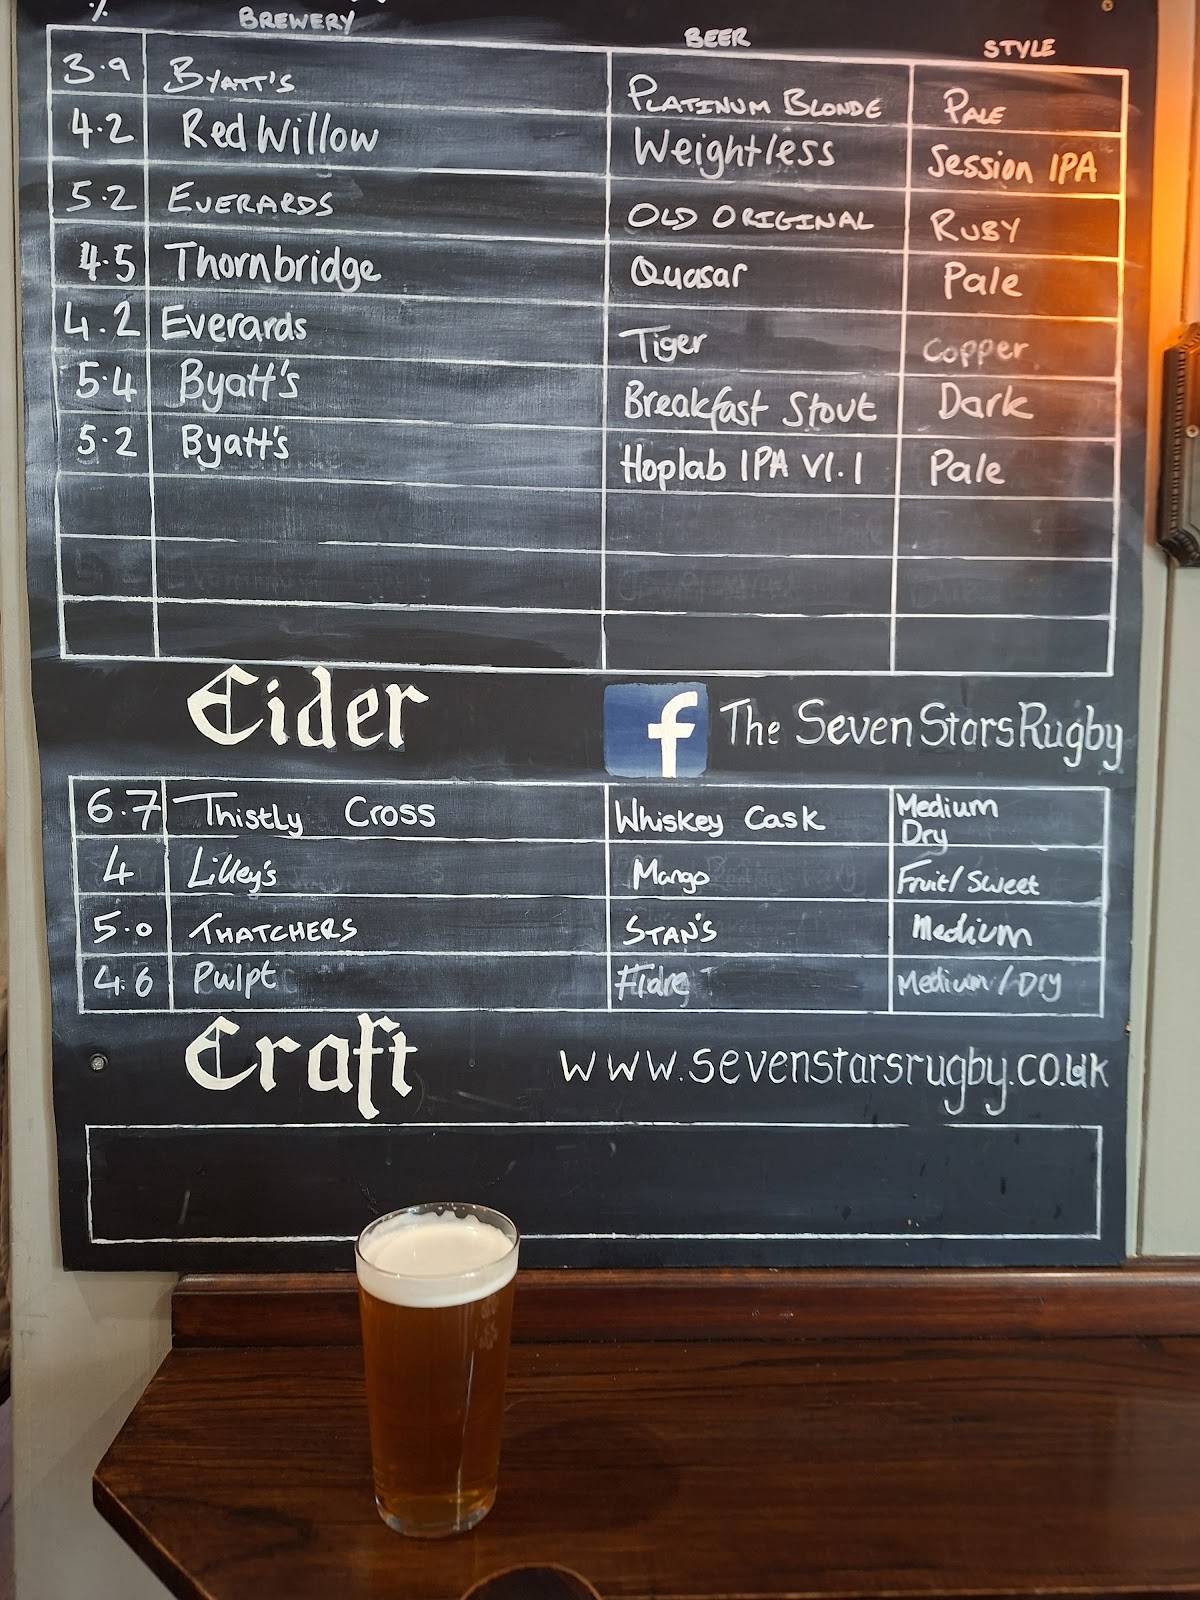 % BREWERY BEER STYLE
3.9 BYATT'S PLATINUM BLONDE PALE
4.2 RedWillow Weightless Session IPA
5.2 EVERARDS OLD ORIGINAL RUBY
4.5 Thornbridge Quasar Pale
4.2 Everards Tiger Copper
5.4 Byatt's Breakfast Stout Dark
5.2 Byatt's Hoplab IPA V1.1 Pale
Cider f The Seven Stars Rugby
6.7 Thistly Cross Whiskey Cask Medium Dry
4 Lilley's Mango Fruit/Sweet
5.0 THATCHERS STAN'S Medium
4.6 Pulpt Medium/Dry
Craft www.sevenstarsrugby.co.uk